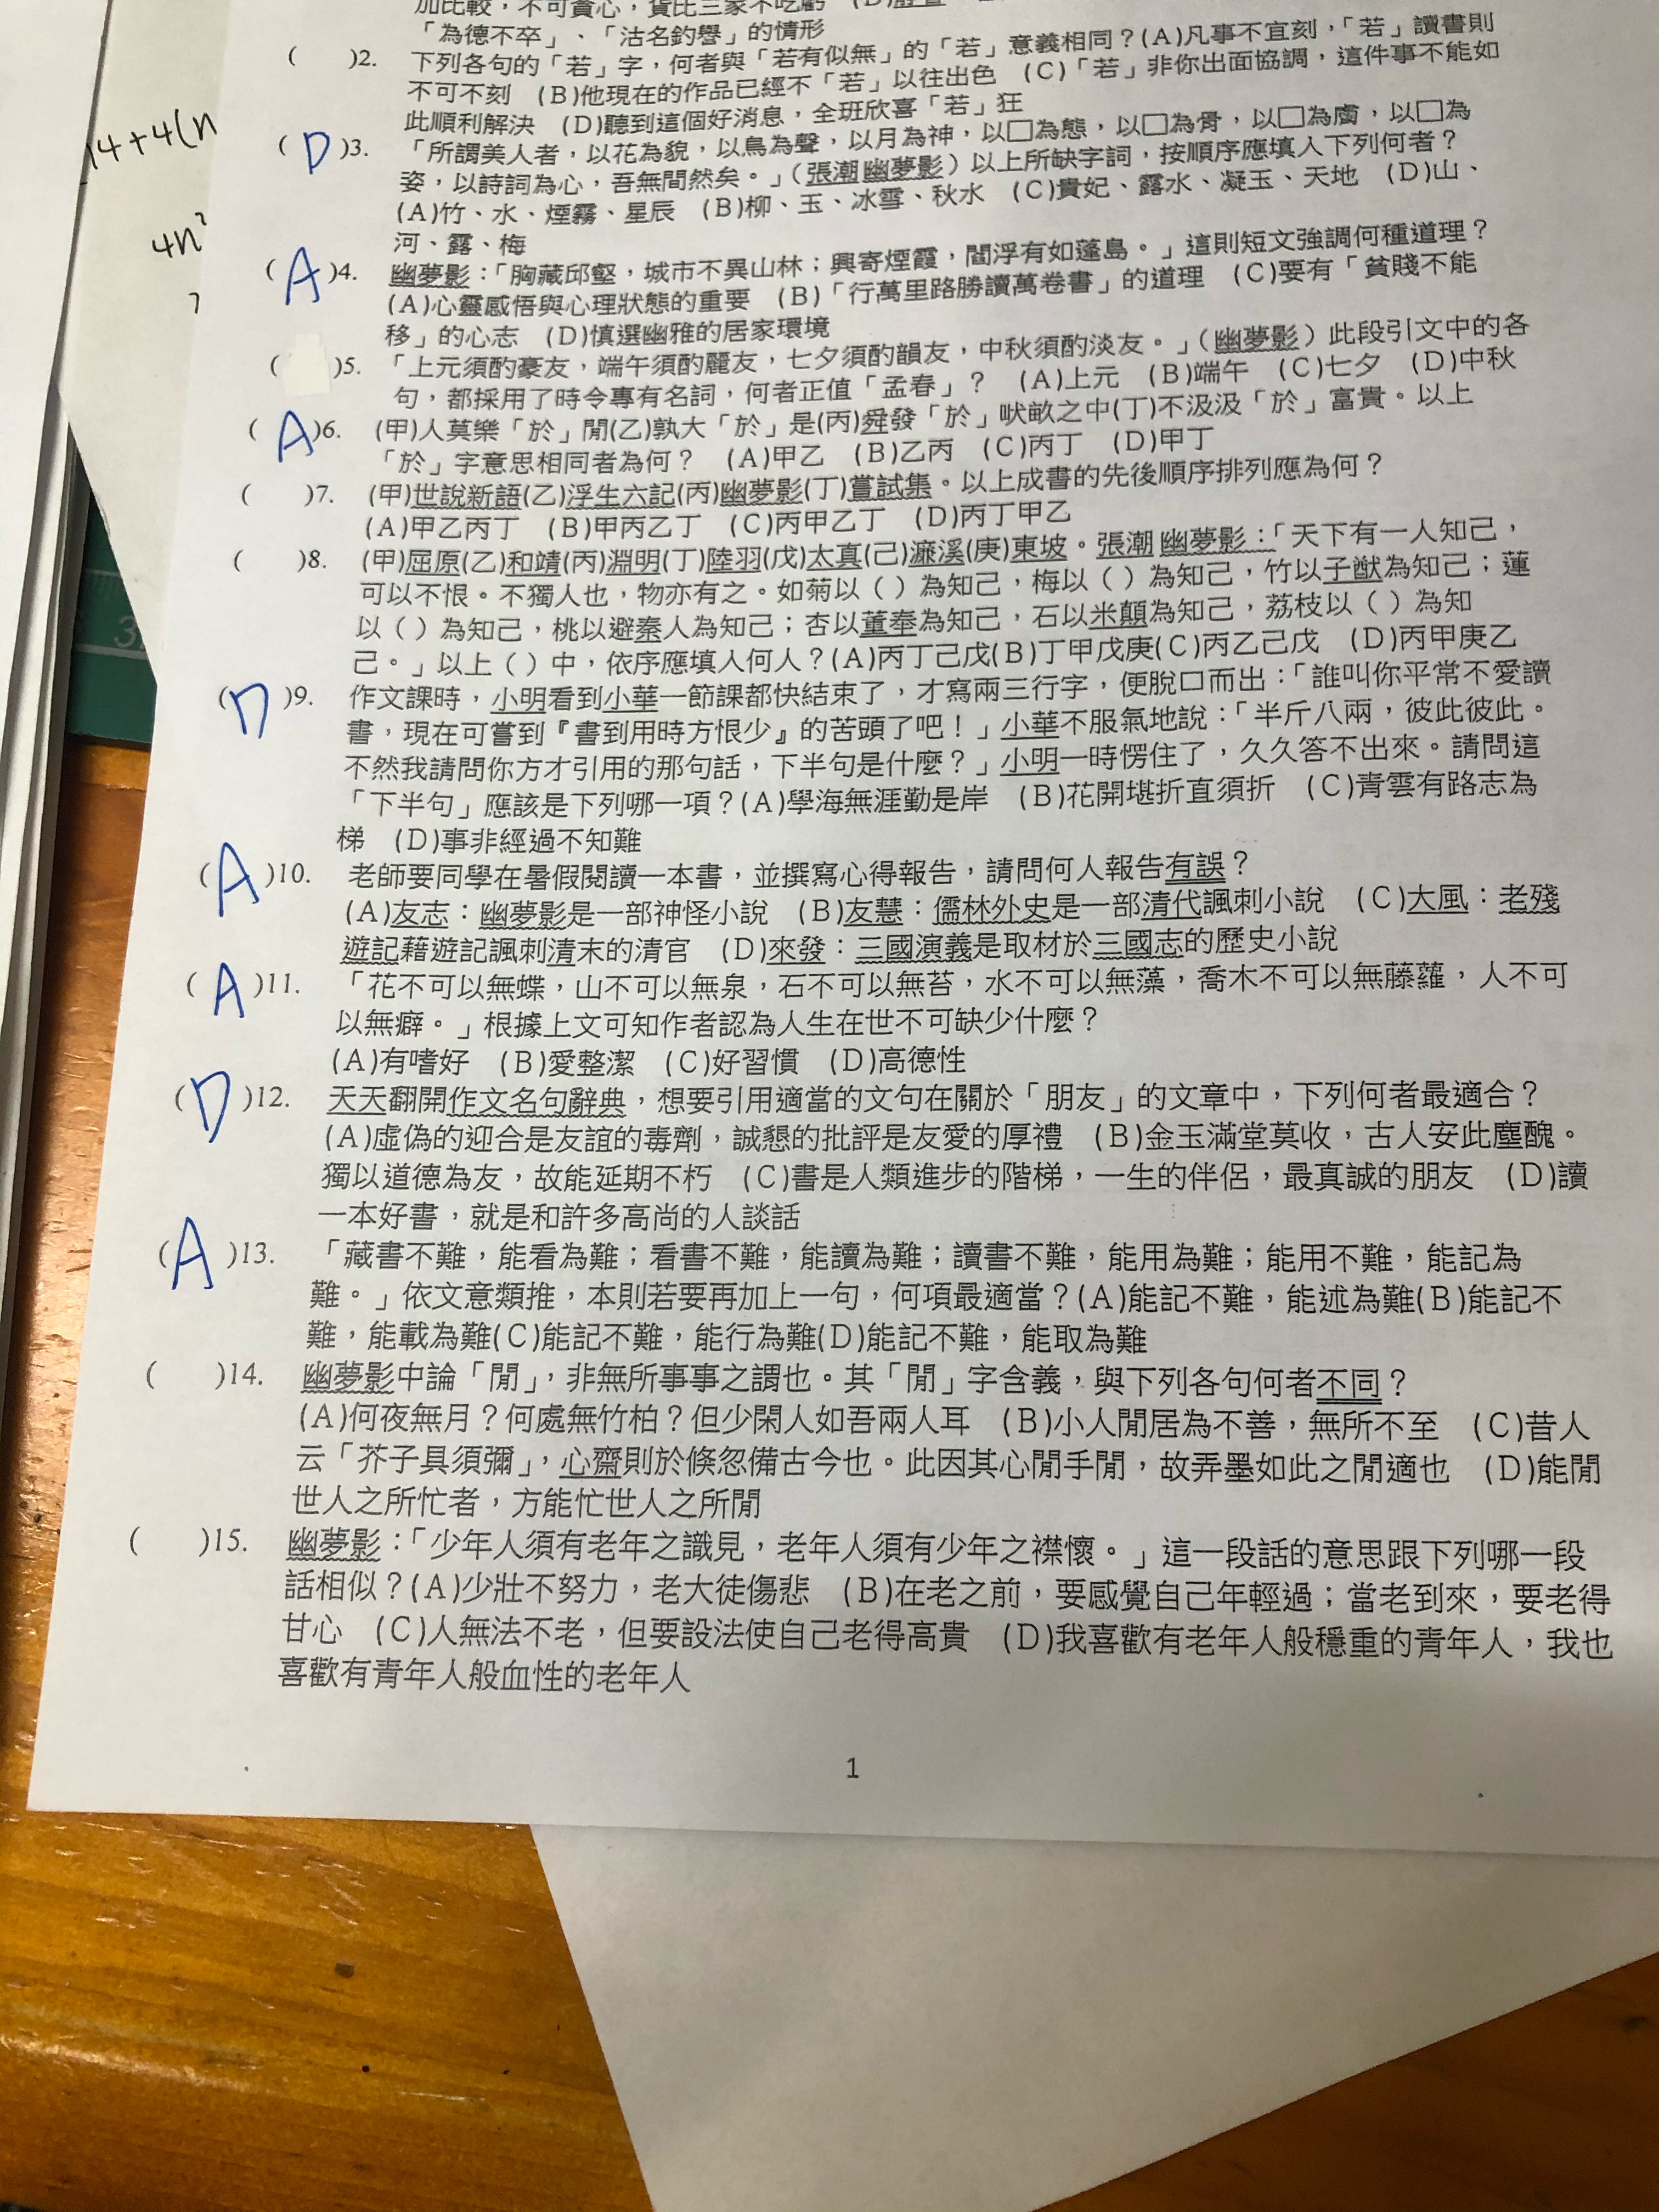 加比較，不可貪心，貨比三家不吃虧
「為德不卒」、「沽名釣譽」的情形
( )2. 下列各句的「若」字，何者與「若有似無」的「若」意義相同？(A)凡事不宜刻，「若」讀書則
不可不刻 (B)他現在的作品已經不「若」以往出色 (C)「若」非你出面協調，這件事不能如
此順利解決 (D)聽到這個好消息，全班欣喜「若」狂
(D)3. 「所謂美人者，以花為貌，以鳥為聲，以月為神，以□為態，以□為骨，以□為膚，以□為
姿，以詩詞為心，吾無間然矣。」（張潮 幽夢影）以上所缺字詞，按順序應填入下列何者？
(A)竹、水、煙霧、星辰 (B)柳、玉、冰雪、秋水 (C)貴妃、露水、凝玉、天地 (D)山、
河、露、梅
(A)4. 幽夢影：「胸藏邱壑，城市不異山林；興寄煙霞，閻浮有如蓬島。」這則短文強調何種道理？
(A)心靈感悟與心理狀態的重要 (B)「行萬里路勝讀萬卷書」的道理 (C)要有「貧賤不能
移」的心志 (D)慎選幽雅的居家環境
( )5. 「上元須酌豪友，端午須酌麗友，七夕須酌韻友，中秋須酌淡友。」（幽夢影）此段引文中的各
句，都採用了時令專有名詞，何者正值「孟春」？ (A)上元 (B)端午 (C)七夕 (D)中秋
(A)6. (甲)人莫樂「於」閒(乙)孰大「於」是(丙)舜發「於」畎畝之中(丁)不汲汲「於」富貴。以上
「於」字意思相同者為何？ (A)甲乙 (B)乙丙 (C)丙丁 (D)甲丁
( )7. (甲)世說新語(乙)浮生六記(丙)幽夢影(丁)嘗試集。以上成書的先後順序排列應為何？
(A)甲乙丙丁 (B)甲丙乙丁 (C)丙甲乙丁 (D)丙丁甲乙
( )8. (甲)屈原(乙)和靖(丙)淵明(丁)陸羽(戊)太真(己)濂溪(庚)東坡。張潮 幽夢影：「天下有一人知己，
可以不恨。不獨人也，物亦有之。如菊以（）為知己，梅以（）為知己，竹以子猷為知己；蓮
以（）為知己，桃以避秦人為知己；杏以董奉為知己，石以米顛為知己，荔枝以（）為知
己。」以上（）中，依序應填入何人？(A)丙丁己戊(B)丁甲戊庚(C)丙乙己戊 (D)丙甲庚乙
(D)9. 作文課時，小明看到小華一節課都快結束了，才寫兩三行字，便脫口而出：「誰叫你平常不愛讀
書，現在可嘗到『書到用時方恨少』的苦頭了吧！」小華不服氣地說：「半斤八兩，彼此彼此。
不然我請問你方才引用的那句話，下半句是什麼？」小明一時愣住了，久久答不出來。請問這
「下半句」應該是下列哪一項？(A)學海無涯勤是岸 (B)花開堪折直須折 (C)青雲有路志為
梯 (D)事非經過不知難
(A)10. 老師要同學在暑假閱讀一本書，並撰寫心得報告，請問何人報告有誤？
(A)友志：幽夢影是一部神怪小說 (B)友慧：儒林外史是一部清代諷刺小說 (C)大風：老殘
遊記藉遊記諷刺清末的清官 (D)來發：三國演義是取材於三國志的歷史小說
(A)11. 「花不可以無蝶，山不可以無泉，石不可以無苔，水不可以無藻，喬木不可以無藤蘿，人不可
以無癖。」根據上文可知作者認為人生在世不可缺少什麼？
(A)有嗜好 (B)愛整潔 (C)好習慣 (D)高德性
(D)12. 天天翻開作文名句辭典，想要引用適當的文句在關於「朋友」的文章中，下列何者最適合？
(A)虛偽的迎合是友誼的毒劑，誠懇的批評是友愛的厚禮 (B)金玉滿堂莫收，古人安此塵醜。
獨以道德為友，故能延期不朽 (C)書是人類進步的階梯，一生的伴侶，最真誠的朋友 (D)讀
一本好書，就是和許多高尚的人談話
(A)13. 「藏書不難，能看為難；看書不難，能讀為難；讀書不難，能用為難；能用不難，能記為
難。」依文意類推，本則若要再加上一句，何項最適當？(A)能記不難，能述為難(B)能記不
難，能載為難(C)能記不難，能行為難(D)能記不難，能取為難
( )14. 幽夢影中論「閒」，非無所事事之謂也。其「閒」字含義，與下列各句何者不同？
(A)何夜無月？何處無竹柏？但少閑人如吾兩人耳 (B)小人閒居為不善，無所不至 (C)昔人
云「芥子具須彌」，心齋則於倏忽備古今也。此因其心閒手閒，故弄墨如此之閒適也 (D)能閒
世人之所忙者，方能忙世人之所閒
( )15. 幽夢影：「少年人須有老年之識見，老年人須有少年之襟懷。」這一段話的意思跟下列哪一段
話相似？(A)少壯不努力，老大徒傷悲 (B)在老之前，要感覺自己年輕過；當老到來，要老得
甘心 (C)人無法不老，但要設法使自己老得高貴 (D)我喜歡有老年人般穩重的青年人，我也
喜歡有青年人般血性的老年人
1
14+4(n
4n²